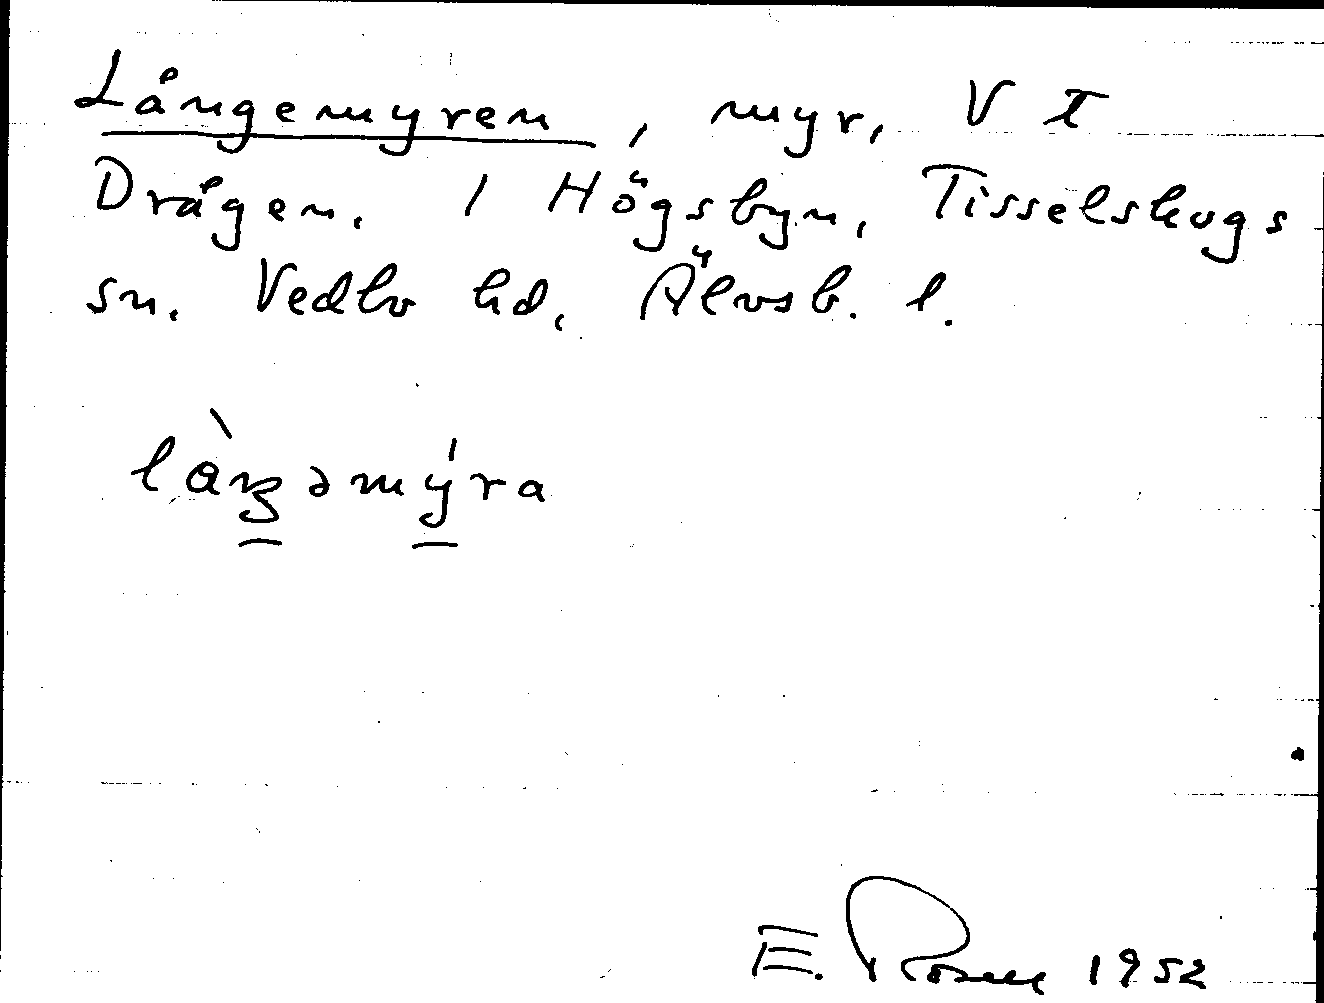 Långemyren, myr, V I
Drågen. I Högsbyn, Tisselskogs
sn. Vedbo hd, Älvsb. l.
làŋəmý̲ra
E. Rosell 1952